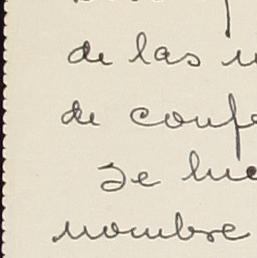 de las
de confe
Se luc
nombre